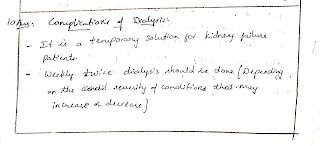 10Ans: Complications of Dialysis:
- It is a temporary solution for kidney failure
patients.
- Weekly twice dialysis should be done [Depending
on the severity of conditions that may
increase or decrease]